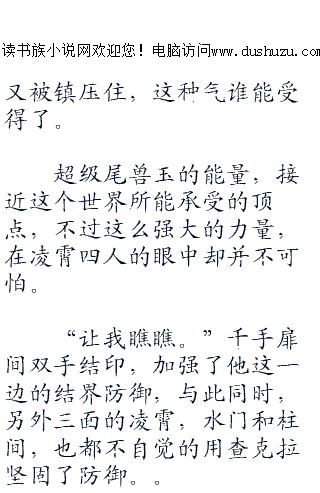 读书族小说网欢迎您！电脑访问www.dushuzu.com
又被镇压住，这种气谁能受
得了。
超级尾兽玉的能量，接
近这个世界所能承受的顶
点，不过这么强大的力量，
在凌霄四人的眼中却并不可
怕。
“让我瞧瞧。”千手扉
间双手结印，加强了他这一
边的结界防御，与此同时，
另外三面的凌霄，水门和柱
间，也都不自觉的用查克拉
坚固了防御。。